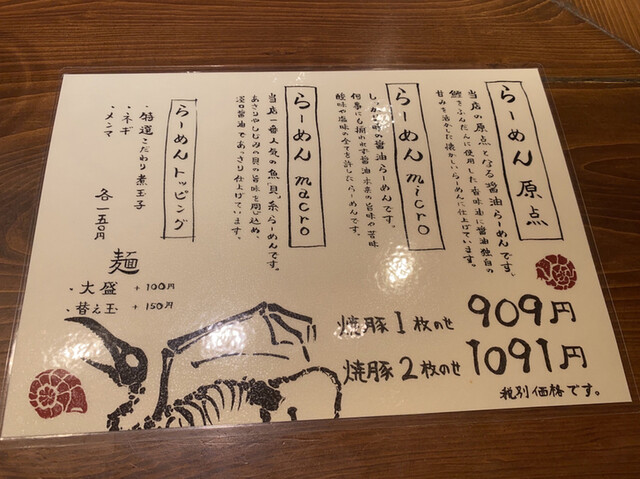 らーめん 原点
当店の原点となる醤油らーめんです。
鰹をふんだんに使用した香味油に醤油独自の
甘みを活かした懐かしいらーめんに仕上げています。
らーめん micro
しょっぱ味の醤油らーめんです。
何事にも捕われず醤油本来の旨味や苦味
酸味や塩味の全てを許したらーめんです。
らーめん macro
当店一番人気の魚貝系らーめんです。
あさりやしじみの貝の旨味を閉じ込め、
淡口醤油であっさり仕上げています。
らーめん トッピング
・飴道こだわり煮玉子
・ネギ
・メンマ
各一五〇円
麺
・大盛 +100円
・替え玉 +150円
焼豚1枚のせ 909円
焼豚2枚のせ 1091円
税別価格です。